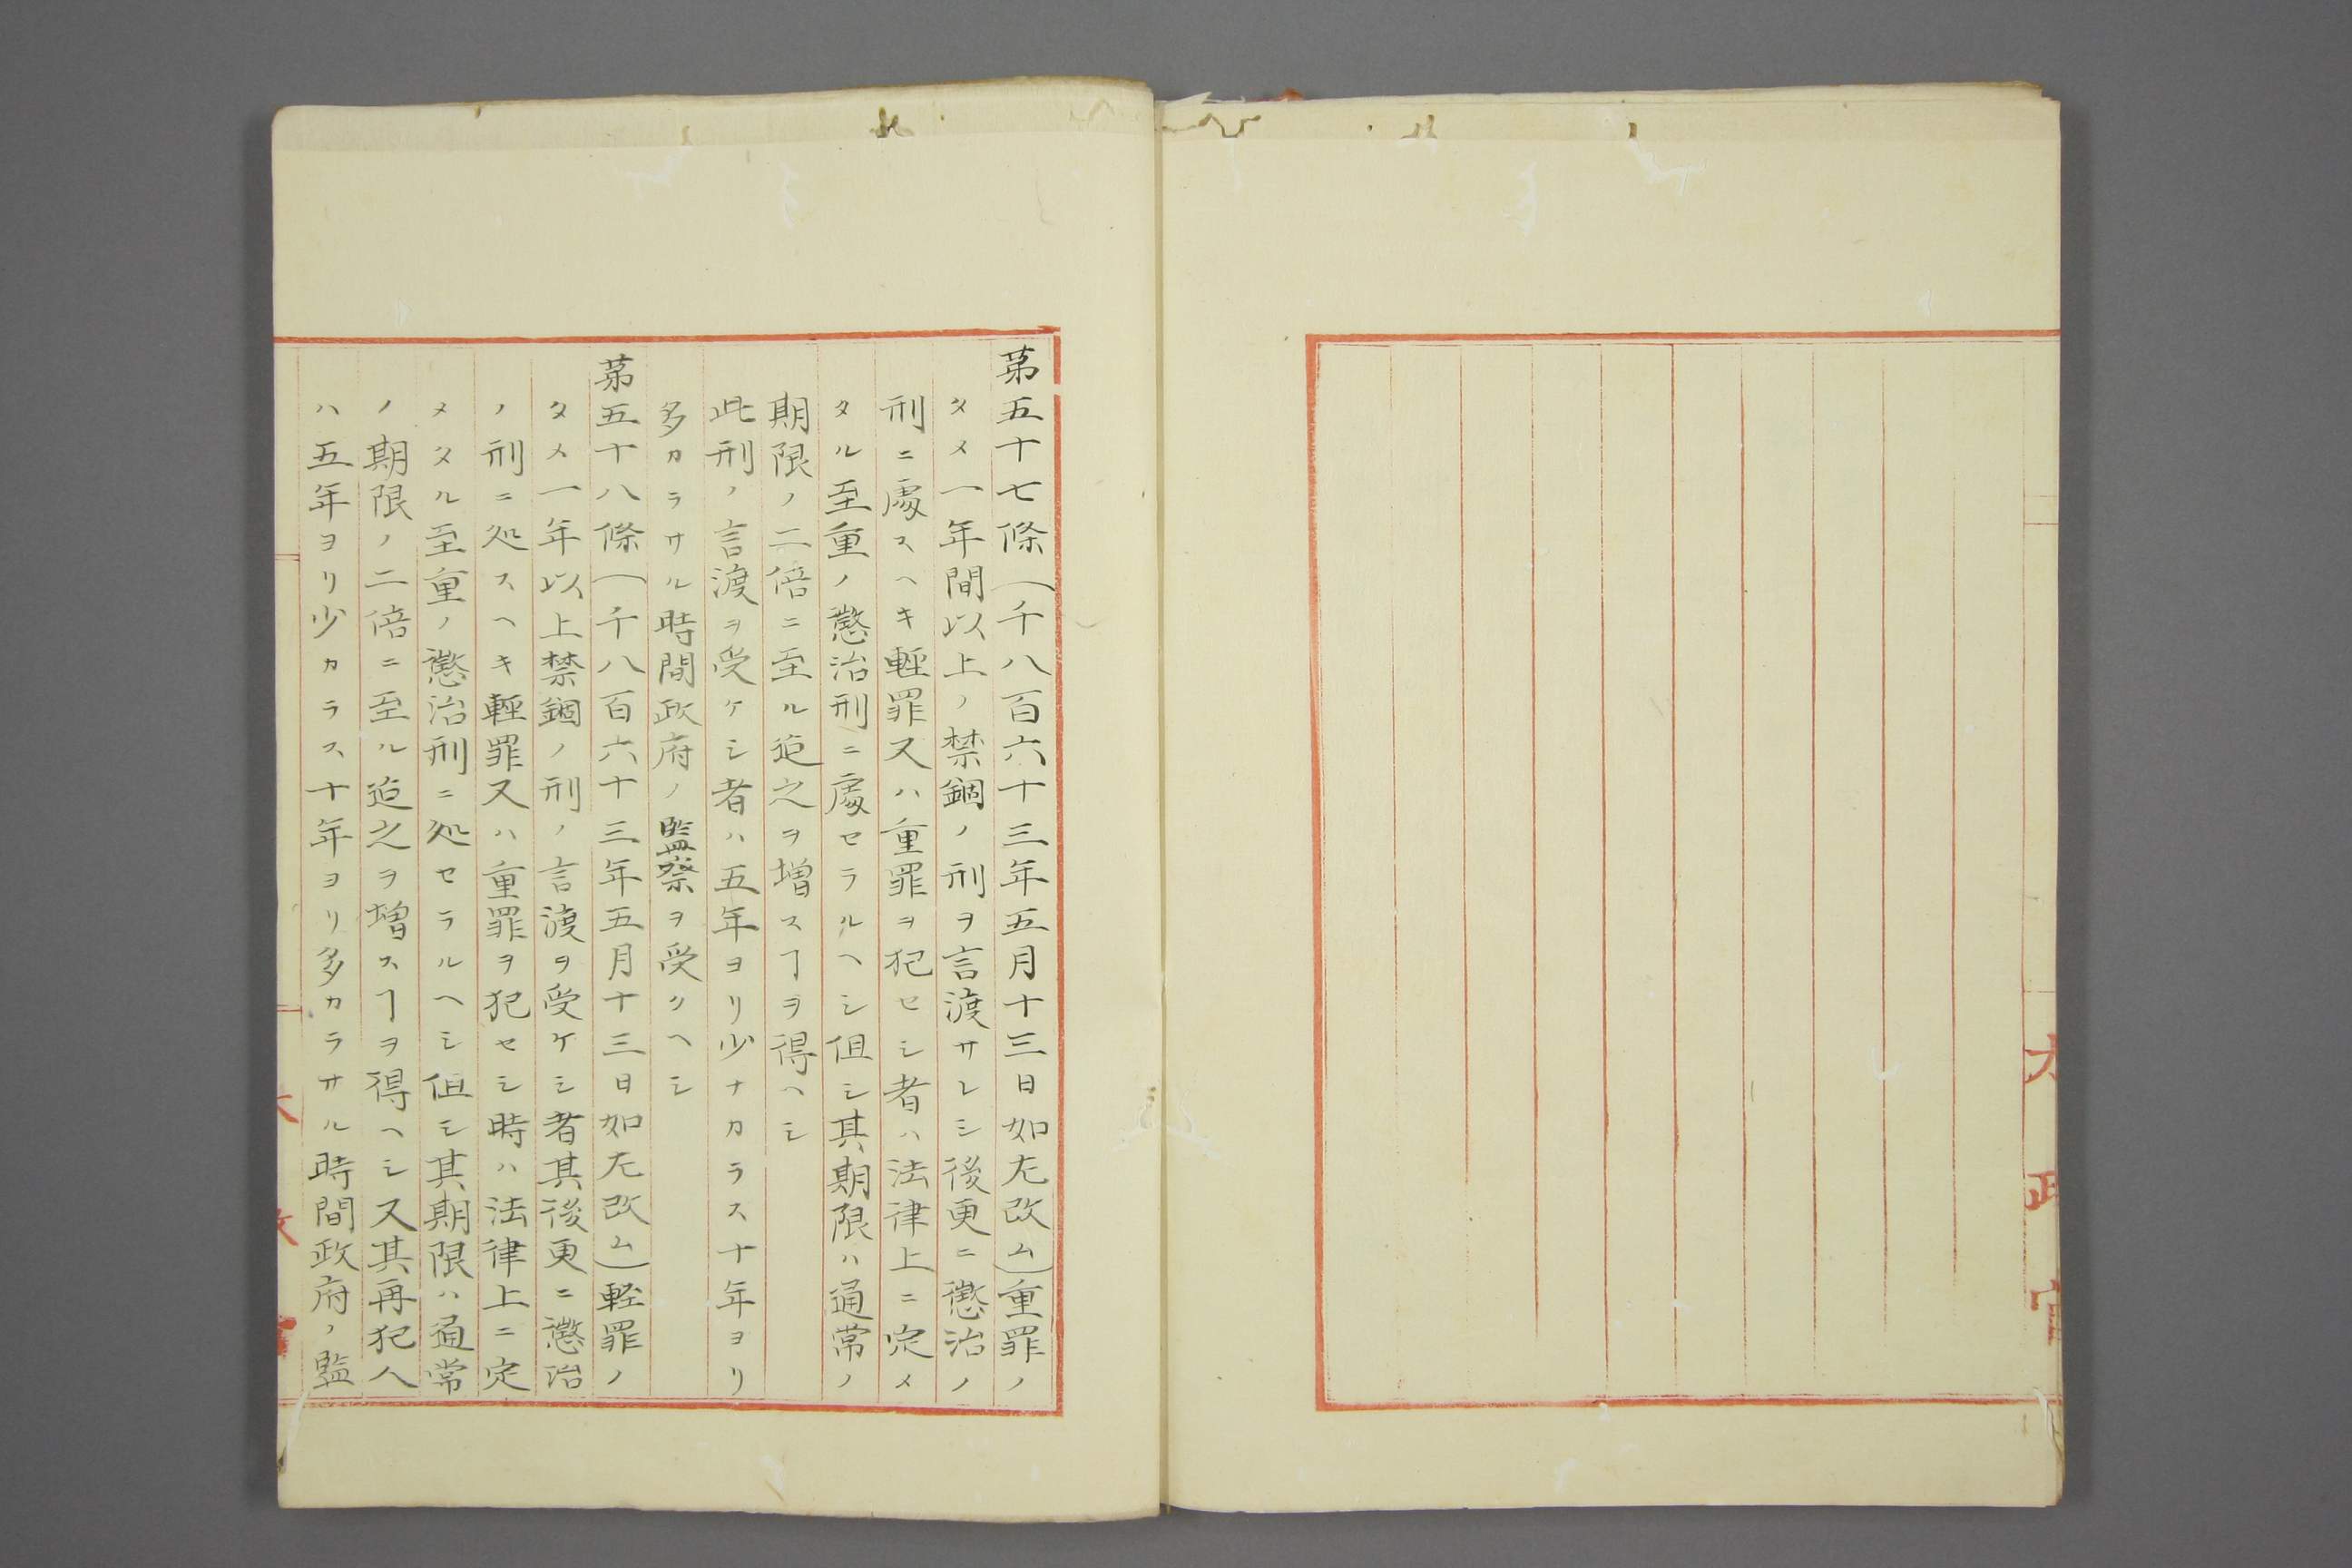 太政官
第五十七條(千八百六十三年五月十三日如左改ム)重罪ノ
タメ一年間以上ノ禁錮ノ刑ヲ言渡サレシ後更ニ懲治ノ
刑ニ處スヘキ輕罪又ハ重罪ヲ犯セシ者ハ法律上ニ定メ
タル至重ノ懲治刑ニ處セラルヘシ但シ其期限ハ通常ノ
期限ノ二倍ニ至ル迠之ヲ増スヿヲ得ヘシ
此刑ノ言渡ヲ受ケシ者ハ五年ヨリ少ナカラス十年ヨリ
多カラサル時間政府ノ監察ヲ受クヘシ
第五十八條(千八百六十三年五月十三日如左改ム)軽罪ノ
タメ一年以上禁錮ノ刑ノ言渡ヲ受ケシ者其後更ニ懲治
ノ刑ニ処スヘキ輕罪又ハ重罪ヲ犯セシ時ハ法律上ニ定
メタル至重ノ懲治刑ニ処セラルヘシ但シ其期限ハ通常
ノ期限ノ二倍ニ至ル迠之ヲ増スヿヲ得ヘシ又其再犯人
ハ五年ヨリ少カラス十年ヨリ多カラサル時間政府ノ監